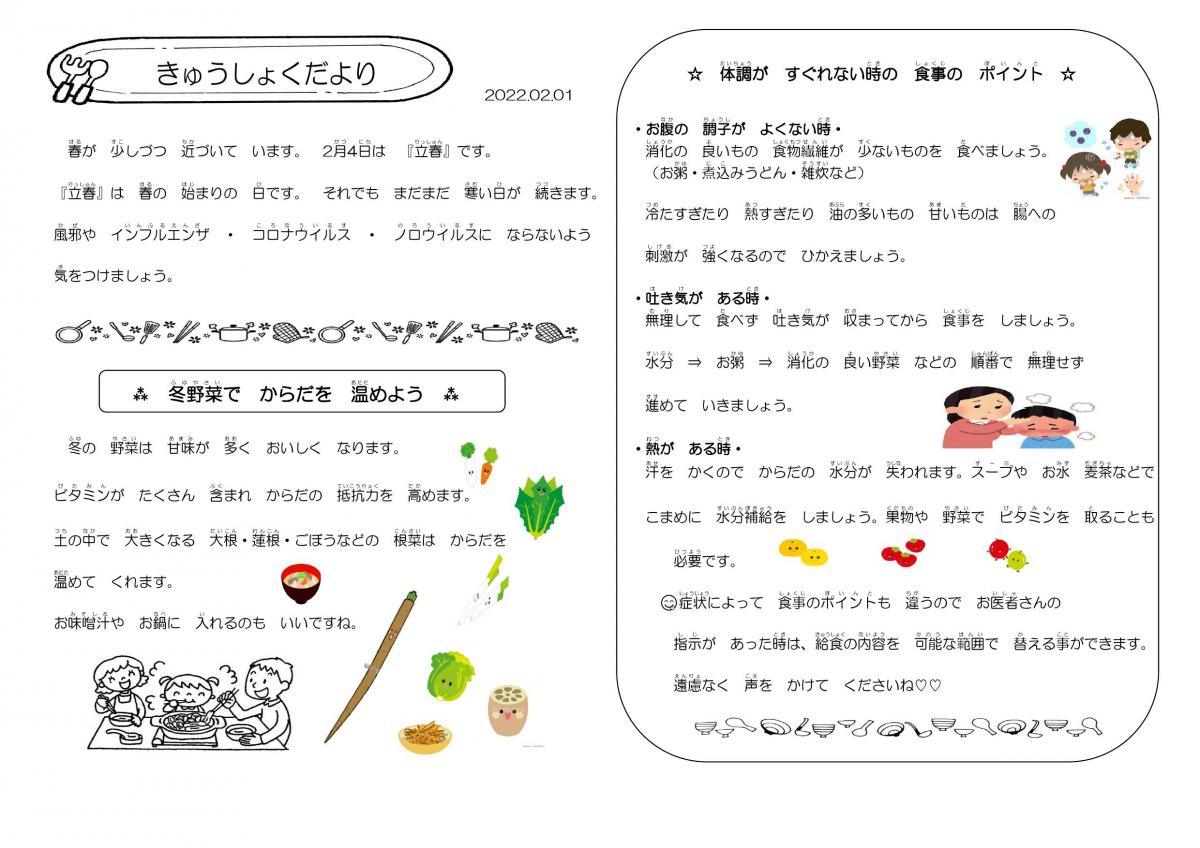 きゅうしょくだより
2022.02.01
春が 少しづつ 近づいて います。 2月4日は 『立春』です。
『立春』は 春の 始まりの 日です。 それでも まだまだ 寒い日が 続きます。
風邪や インフルエンザ ・ コロナウイルス ・ ノロウイルスに ならないよう
気をつけましょう。
⁂ 冬野菜で からだを 温めよう ⁂
冬の 野菜は 甘味が 多く おいしく なります。
ビタミンが たくさん 含まれ からだの 抵抗力を 高めます。
土の中で 大きくなる 大根・蓮根・ごぼうなどの 根菜は からだを
温めて くれます。
お味噌汁や お鍋に 入れるのも いいですね。
☆ 体調が すぐれない時の 食事の ポイント ☆
・お腹の 調子が よくない時・
消化の 良いもの 食物繊維が 少ないものを 食べましょう。
（お粥・煮込みうどん・雑炊など）
冷たすぎたり 熱すぎたり 油の多いもの 甘いものは 腸への
刺激が 強くなるので ひかえましょう。
・吐き気が ある時・
無理して 食べず 吐き気が 収まってから 食事を しましょう。
水分 ⇒ お粥 ⇒ 消化の 良い野菜 などの 順番で 無理せず
進めて いきましょう。
・熱が ある時・
汗を かくので からだの 水分が 失われます。スープや お水 麦茶などで
こまめに 水分補給を しましょう。果物や 野菜で ビタミンを 取ることも
必要です。
☺症状によって 食事のポイントも 違うので お医者さんの
指示が あった時は、給食の内容を 可能な範囲で 替える事ができます。
遠慮なく 声を かけて くださいね♡♡